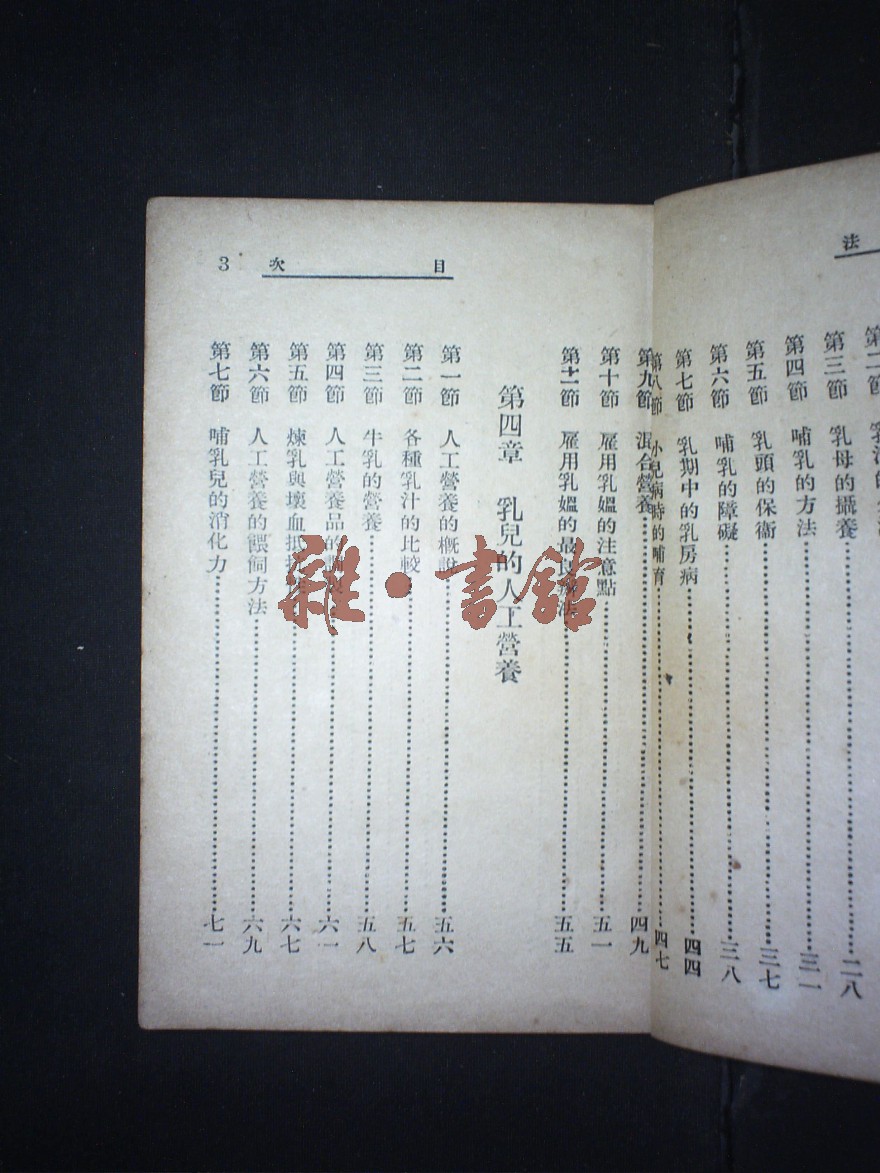 法
第三節 乳母的攝養 二八
第四節 哺乳的方法 三一
第五節 乳頭的保衞 三七
第六節 哺乳的障礙 三八
第七節 乳期中的乳房病 四四
第八節 小兒病時的哺育 四七
目 次 3
第九節 混合營養 四九
第十節 雇用乳媼的注意點 五一
第十一節 雇用乳媼的最 法 五五
第四章 乳兒的人工營養
第一節 人工營養的概說 五六
第二節 各種乳汁的比較 五七
第三節 牛乳的營養 五八
第四節 人工營養品的 六一
第五節 煉乳與壞血 六七
第六節 人工營養的餵飼方法 六九
第七節 哺乳兒的消化力 七一
雜·書館